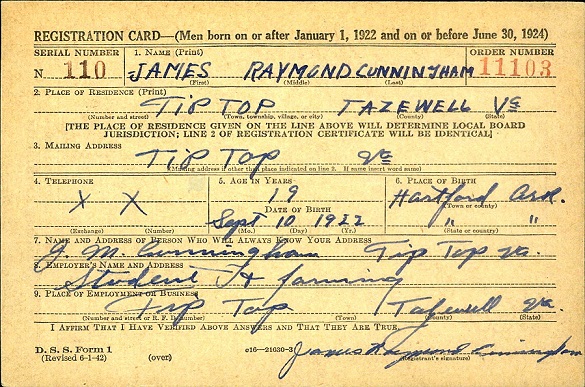 REGISTRATION CARD—(Men born on or after January 1, 1922 and on or before June 30, 1924)
SERIAL NUMBER 1. NAME (Print) ORDER NUMBER
N 110 JAMES RAYMOND CUNNINGHAM 11103
(First) (Middle) (Last)
2. PLACE OF RESIDENCE (Print)
TIP TOP TAZEWELL Va
(Number and street) (Town, township, village, or city) (County) (State)
[THE PLACE OF RESIDENCE GIVEN ON THE LINE ABOVE WILL DETERMINE LOCAL BOARD
JURISDICTION; LINE 2 OF REGISTRATION CERTIFICATE WILL BE IDENTICAL]
3. MAILING ADDRESS
TIP TOP Va
[Mailing address if other than place indicated on line 2. If same insert word same]
4. TELEPHONE 5. AGE IN YEARS 6. PLACE OF BIRTH
X X 19 Hartford Ark.
DATE OF BIRTH (Town or county)
Sept 10 1922 " "
(Exchange) (Number) (Mo.) (Day) (Yr.) (State or country)
7. NAME AND ADDRESS OF PERSON WHO WILL ALWAYS KNOW YOUR ADDRESS
J. M. Cunningham Tip Top Va.
8. EMPLOYER'S NAME AND ADDRESS
Student farming
9. PLACE OF EMPLOYMENT OR BUSINESS
Tip Top Tazewell Va.
(Number and street or R. F. D. number) (Town) (County) (State)
I AFFIRM THAT I HAVE VERIFIED ABOVE ANSWERS AND THAT THEY ARE TRUE.
D. S. S. Form 1
(Revised 6-1-42) (over) e16—21630-2 James Raymond Cunningham
(Registrant's signature)